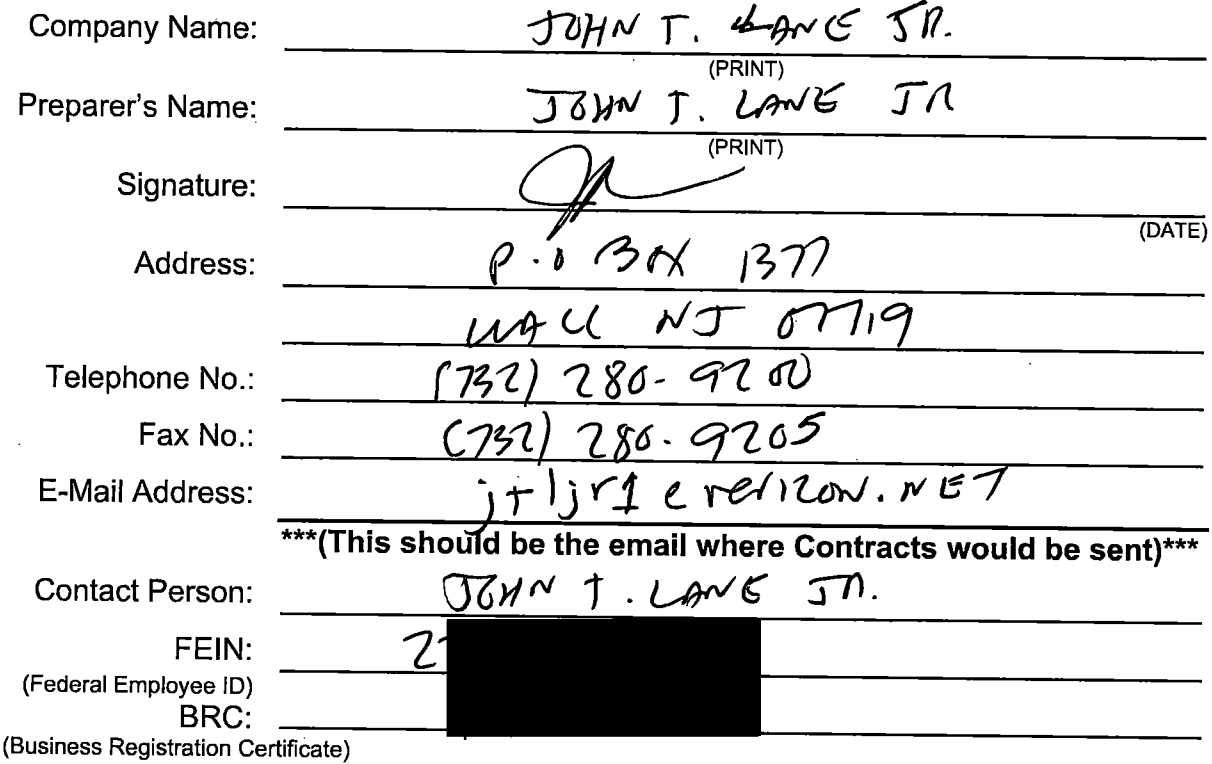 Company Name: JOHN T. LANE JR.
(PRINT)
Preparer's Name: JOHN T. LANE JR
(PRINT)
Signature:
(DATE)
Address: P.O BOX 1377
WALL NJ 07719
Telephone No.: (732) 280-9200
Fax No.: (732) 280-9205
E-Mail Address: jtljr1@verizon.NET
***(This should be the email where Contracts would be sent)***
Contact Person: JOHN T. LANE JR.
FEIN: 2
(Federal Employee ID)
BRC:
(Business Registration Certificate)